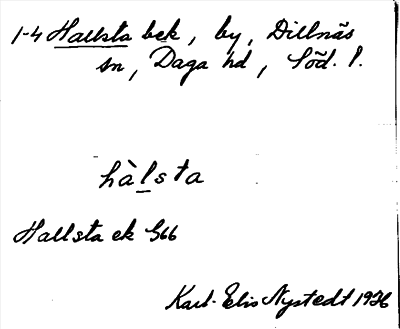 1-4 Hallsta bek, by, Dillnäs
sn, Daga hd, Söd. l.
hàlsta
Hallsta ek G66
Karl-Elis Nystedt 1926